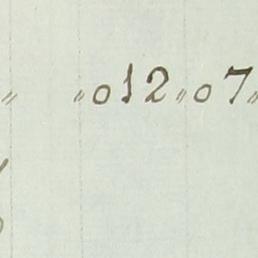 " "012"07"